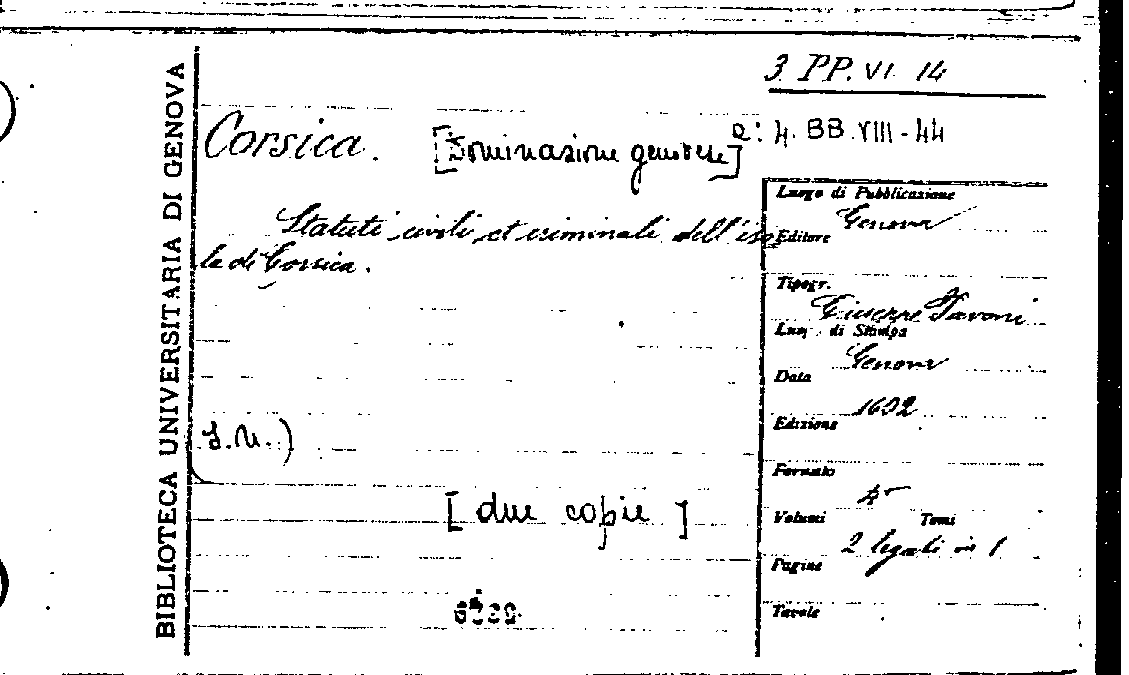 BIBLIOTECA UNIVERSITARIA DI GENOVA
3 PP. VI. 14
e: 4. BB. VIII - 44
Corsica. [Dominazione genovese]
Statuti civili et criminali dell'iso
la di Corsica.
S.N.)
[due copie]
Luogo di Pubblicazione
Genova
Editore
Tipogr.
Giuseppe Pavoni
Luog. di Stampa
Genova
Data
1602
Edizione
Formato
4°
Volumi Tomi
2 legati in 1
Pagine
Tavole